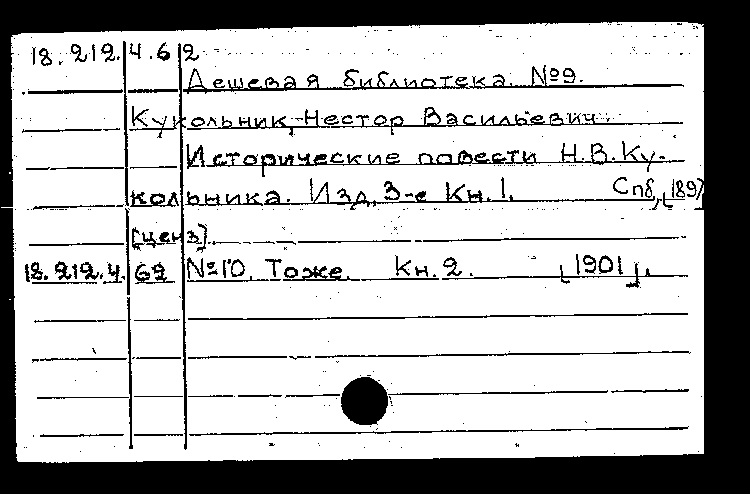 18.212.4.62
Дешевая библиотека. №9.
Кукольник, Нестор Васильевич.
Исторические повести Н.В.Ку-
кольника. Изд. 3-е Кн. 1. Спб, [1897
[ценз].
18.212.4.62 №10. Тоже. Кн. 2. [1901].